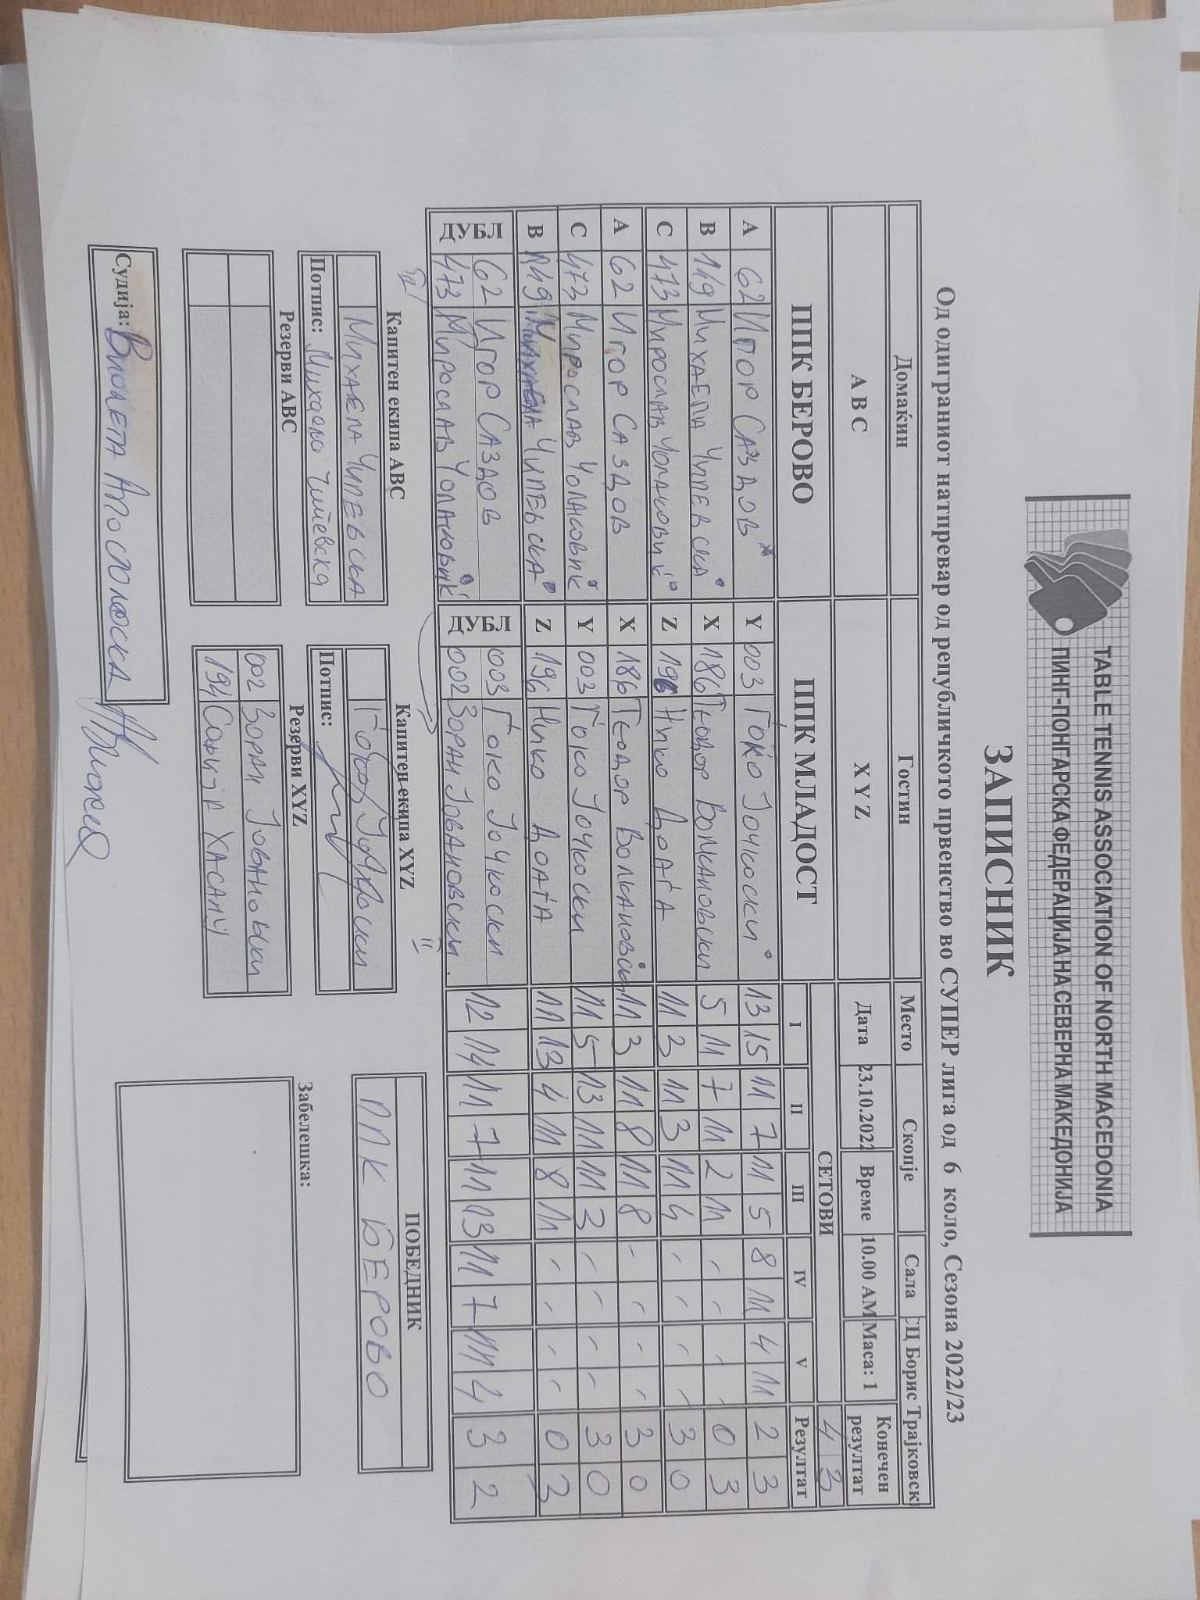 TABLE TENNIS ASSOCIATION OF NORTH MACEDONIA
ПИНГ-ПОНГАРСКА ФЕДЕРАЦИЈА НА СЕВЕРНА МАКЕДОНИЈА
ЗАПИСНИК
Од одиграниот натпревар од републичкото првенство во СУПЕР лига од 6 коло, Сезона 2022/23
Домаќин Гостин Место Скопје Сала СЦ Борис Трајковск
A B C X Y Z Дата 23.10.2022 Време 10.00 AM Маса: 1 Конечен резултат
ППК БЕРОВО ППК МЛАДОСТ СЕТОВИ 4 3
I II III IV V Резултат
A 62 ИГОР САЗДОВ Y 003 ГОКО ГОЧКОСКИ 13 15 11 7 11 5 8 11 4 11 2 3
B 149 МИХАЕЛА ЧИПЕВСКА X 186 ТЕОДОР ВОЛКАНОВСКИ 5 11 7 11 2 11 - - - - 0 3
C 473 МИРОСЛАВ ЧОЛАКОВИЌ Z 196 НИКО ДОАГА 11 3 11 3 11 4 - - - - 3 0
A 62 ИГОР САЗДОВ X 186 ТЕОДОР ВОЛКАНОВСКИ 11 3 11 8 11 8 - - - - 3 0
C 473 МИРОСЛАВ ЧОЛАКОВИЌ Y 003 ГОКО ГОЧКОСКИ 11 5 13 11 11 3 - - - - 3 0
B 149 МИХАЕЛА ЧИПЕВСКА Z 196 НИКО ДОАГА 11 13 4 11 8 11 - - - - 0 3
ДУБЛ 62 ИГОР САЗДОВ ДУБЛ 003 ГОКО ГОЧКОСКИ 12 14 11 7 11 13 11 7 11 4 3 2
473 МИРОСЛАВ ЧОЛАКОВИЌ 002 ЗОРАН ЈОВАНОВСКИ
Капитен екипа ABC Капитен екипа XYZ ПОБЕДНИК
МИХАЕЛА ЧИПЕВСКА ГОКО ГОЧКОСКИ ППК БЕРОВО
Потпис: Михаела Чипевска Потпис:
Резерви ABC Резерви XYZ Забелешка:
002 ЗОРАН ЈОВАНОВСКИ
194
Судија: ВИОЛЕТА АПОСТОЛОСКА